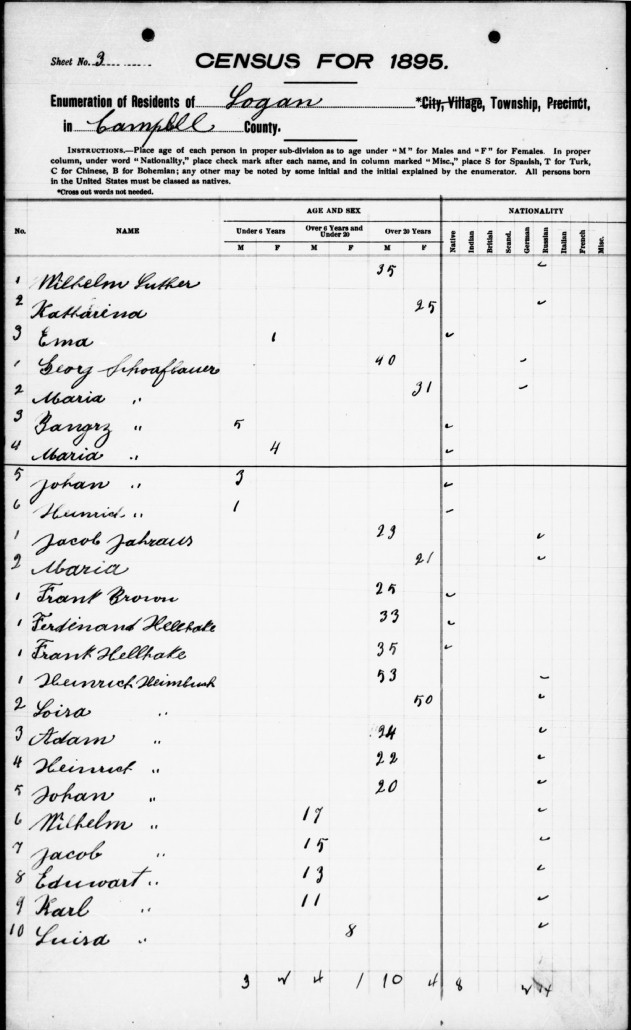 Sheet No. 3
CENSUS FOR 1895.
Enumeration of Residents of Logan *City, Village, Township, Precinct,
in Campbell County.
INSTRUCTIONS.—Place age of each person in proper sub-division as to age under "M" for Males and "F" for Females. In proper
column, under word "Nationality," place check mark after each name, and in column marked "Misc.," place S for Spanish, T for Turk,
C for Chinese, B for Bohemian; any other may be noted by some initial and the initial explained by the enumerator. All persons born
in the United States must be classed as natives.
*Cross out words not needed.
AGE AND SEX NATIONALITY
No. NAME Under 6 Years Over 6 Years and Under 20 Over 20 Years Native Indian British Scand. German Russian Italian French Misc.
M F M F M F
1 Wilhelm Luther 35 ✓
2 Katharina 25 ✓
3 Ema 1 ✓
1 Georg Schoafbauer 40 ✓
2 Maria " 31 ✓
3 " 5 ✓
4 Maria " 4 ✓
5 Johan " 3 ✓
6 Heinrich " 1 ✓
1 Jacob Jahraus 23 ✓
2 Maria 21 ✓
1 Frank Brown 25 ✓
1 Ferdinand Hellhake 33 ✓
1 Frank Hellhake 35 ✓
1 Heinrich Heimbuch 53 ✓
2 Loisa " 50 ✓
3 Adam " 24 ✓
4 Heinrich " 22 ✓
5 Johan " 20 ✓
6 Wilhelm " 17 ✓
7 Jacob " 15 ✓
8 Eduwart " 13 ✓
9 Karl " 11 ✓
10 Luisa " 8 ✓
3 2 4 1 10 4 8 2 14